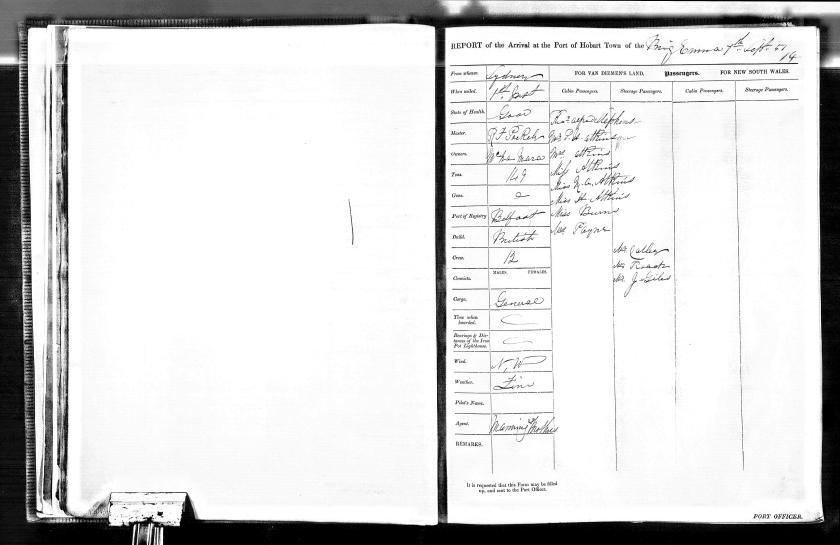 REPORT of the Arrival at the Port of Hobart Town of the Brig Emma 7th Sept. 51
14
From whence. Sydney
FOR VAN DIEMEN'S LAND. Passengers. FOR NEW SOUTH WALES.
When sailed. 1st Inst
Cabin Passengers. Steerage Passengers. Cabin Passengers. Steerage Passengers.
State of Health. Good
Stephens
Master. R F Pockley
Owners. McNamara Mrs Atkins
Tons. 149 Miss Atkins
Miss Atkins
Guns. Miss H Atkins
Port of Registry Belfast Miss Burns
Build. British Payne
Crew. 12 Mr. Calley
Convicts. MALES. FEMALES.
Mr. J. Giles
Cargo. General
Time when boarded.
Bearings & Distances of the Iron Pot Lighthouse.
Wind. N, W
Weather. Fine
Pilot's Name.
Agent. Manning Brothers
REMARKS.
It is requested that this Form may be filled
up, and sent to the Port Officer.
PORT OFFICER.